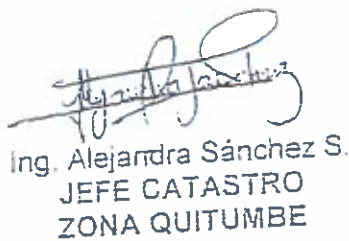 Ing. Alejandra Sánchez S.
JEFE CATASTRO
ZONA QUITUMBE